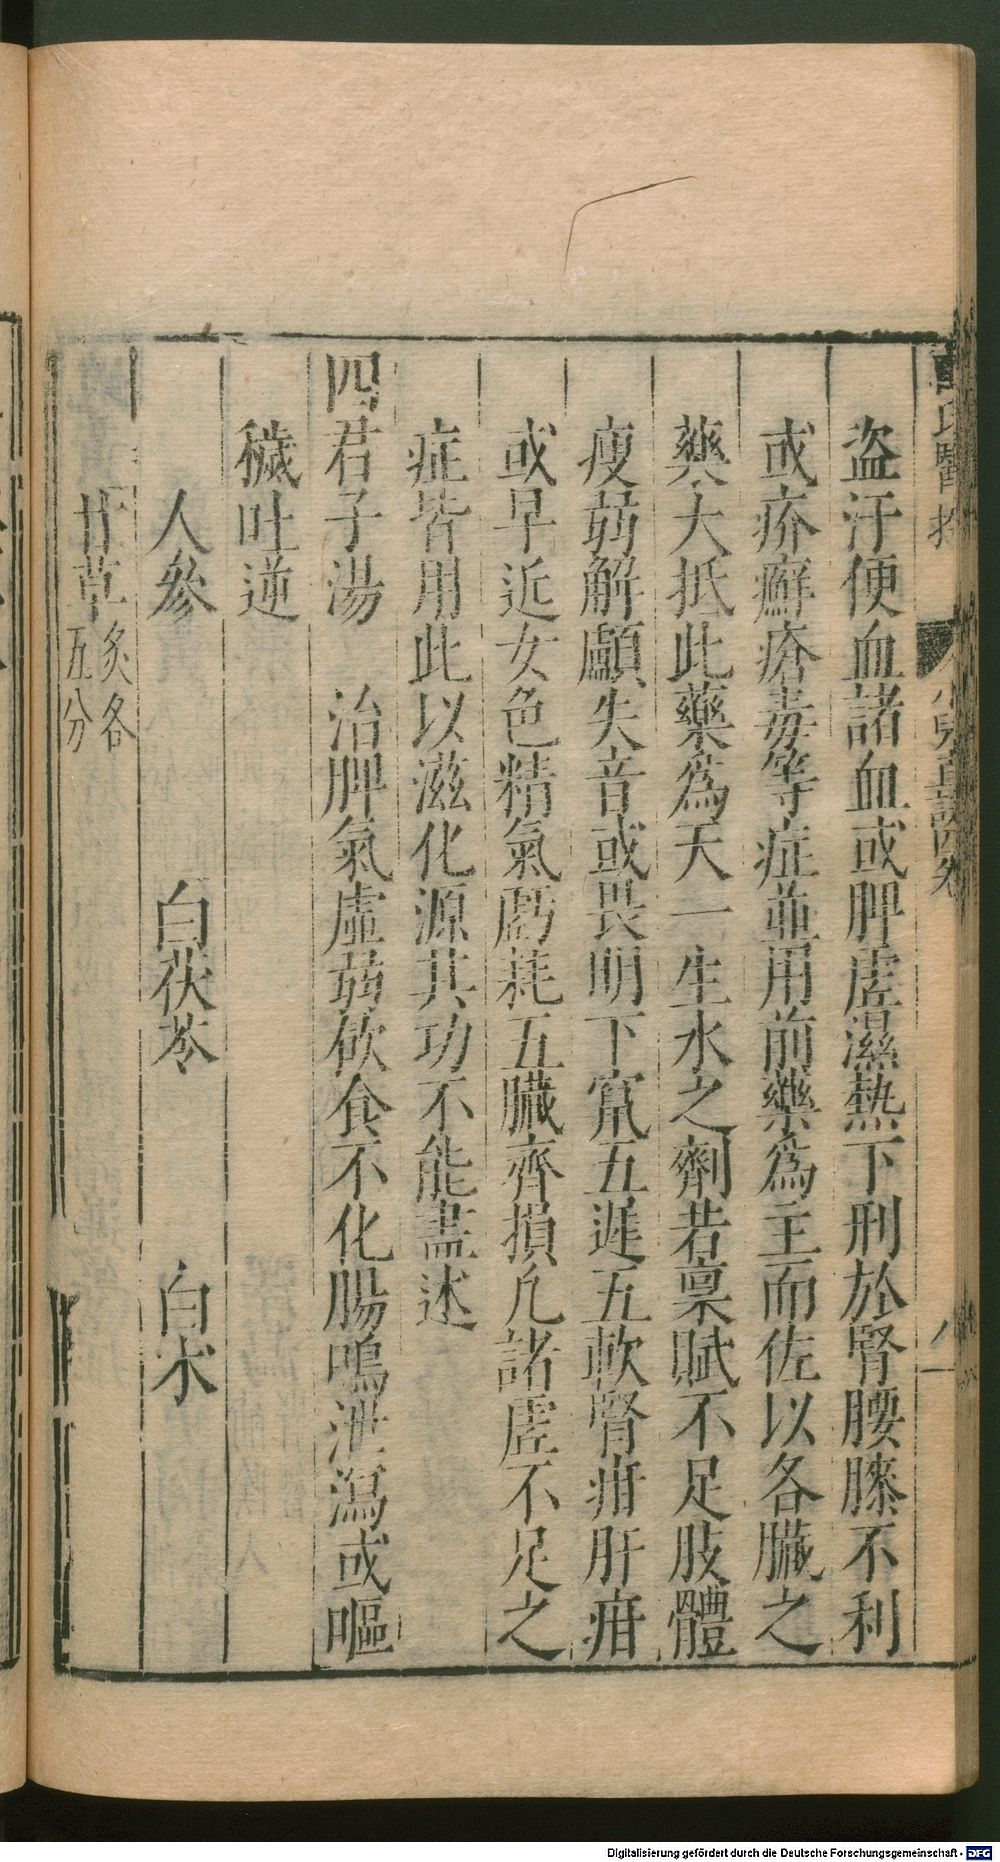 盗汗便血諸血或脾虚濕熱下刑於腎腰膝不利
或疥癬瘡毒等症並用前藥為主而佐以各臟之
藥大抵此藥為天一生水之劑若稟賦不足肢體
瘦弱解顱失音或畏明下竄五遲五軟腎疳肝疳
或早近女色精氣虧耗五臟齊損凢諸虚不足之
症皆用此以滋化源其功不能盡述
四君子湯 治脾氣虛弱飲食不化腸鳴泄瀉或嘔
穢吐逆
人參 白茯苓 白术
甘草 炙各
五分
氏醫
小兒直訣四卷
Digitalisierung gefördert durch die Deutsche Forschungsgemeinschaft - DFG